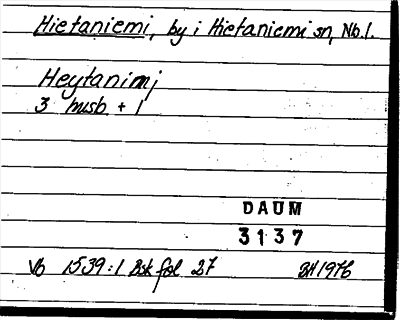 Hietaniemi, by i Hietaniemi sn, Nb.l.
Heytanimj
3 husb + 1
DAUM
3137
Vb 1539:1 Bsk fol 27 BH 1976